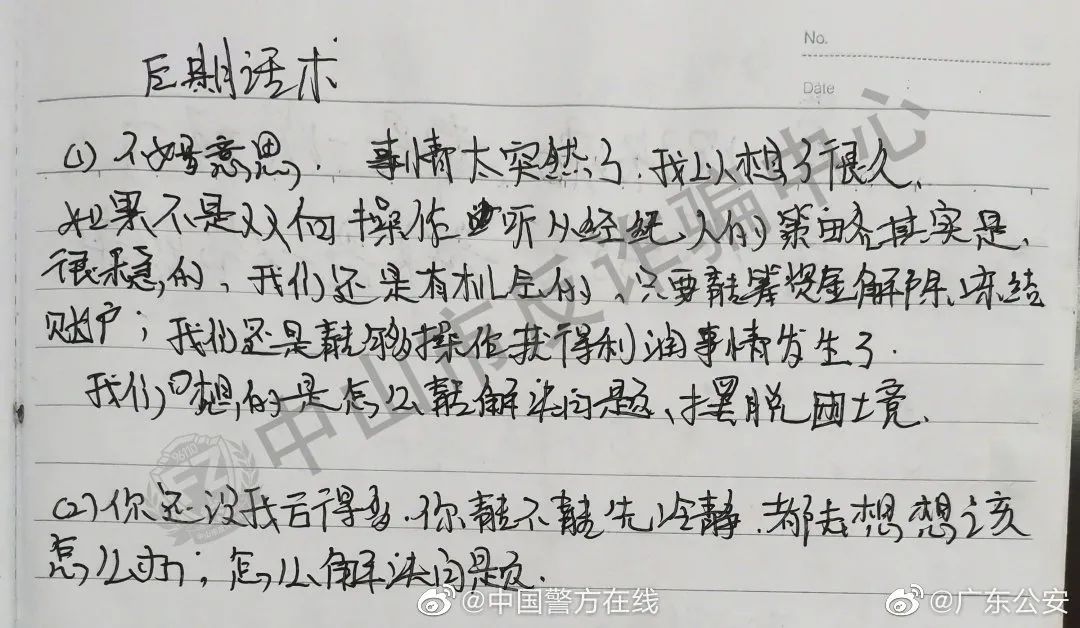 No.
Date
后期话术
(1) 不好意思, 事情太突然了. 我以想了很久、
如果不是双向操作 听从经纪人的策略其实是、
很稳的, 我们还是有机会的、只要能筹资金解除冻结
账户; 我们还是能够操作获得利润事情发生了.
我们 想的是怎么能解决问题、摆脱困境、
(2) 你还没我亏得多. 你能不能先冷静. 都去想想该
怎么办; 怎么解决问题.
中山市反诈骗中心
@中国警方在线
@广东公安